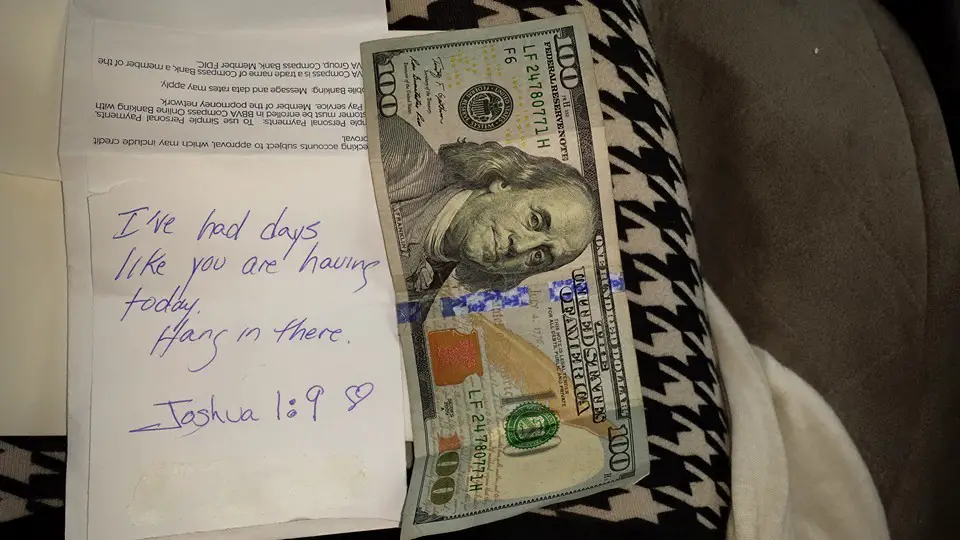 I've had days
like you are having
today.
Hang in there.
Joshua 1:9
VA Compass is a trade name of Compass Bank, a member of the
VA Group, Compass Bank, Member FDIC.
bile Banking: Message and data rates may apply.
mple Personal Payments: To use Simple Personal Payments,
stomer must be enrolled in BBVA Compass Online Banking with
Pay service. Member of the popmoney network.
ecking accounts subject to approval, which may include credit
proval.
100
FEDERAL RESERVE NOTE
LF 24780771 H
F6
100
FRANKLIN
THE
UNITED STATES
OF AMERICA
THIS NOTE IS LEGAL TENDER
FOR ALL DEBTS, PUBLIC AND PRIVATE
ONE HUNDRED DOLLARS
July 4, 1776
LF 24780771 H
100
100